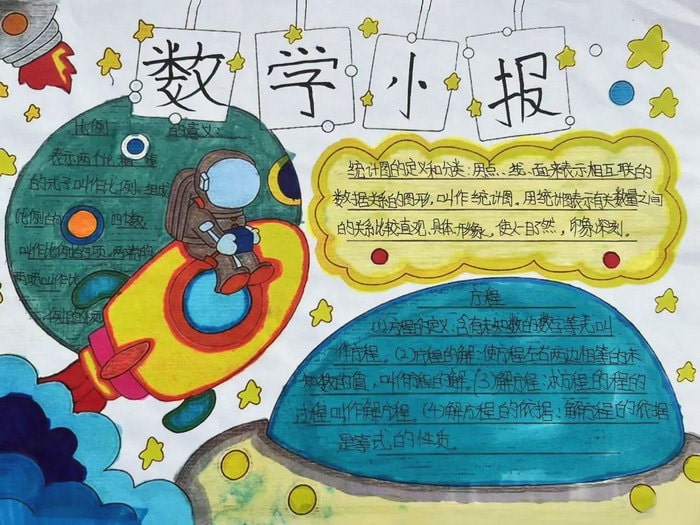 数学小报
比例 的意义：
表示两个比相等
的式子叫作比例。组成
比例的 四个数，
叫作比例的项。两端的
两项叫作比
例的外项
统计图的定义和分类：用点、线、面来表示相互联的
数据关系的图形，叫作统计图。用统计图表示有关数量之间
的关系比较直观、具体、形象，使人一目了然，印象深刻。
方程
(1)方程的定义：含有未知数的数学等式叫
作方程。(2)方程的解：使方程左右两边相等的未
知数的值，叫作方程的解。(3)解方程：求方程的程的
过程叫作解方程。(4)解方程的依据：解方程的依据
是等式的性质。